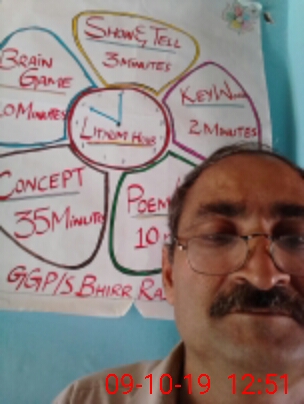 SHOW & TELL
3 MINUTES
BRAIN
GAME
MINUTES
2 MINUTES
CONCEPT
35 MINUTES
POEM
10
GGP/S BHIRR
09-10-19 12:51